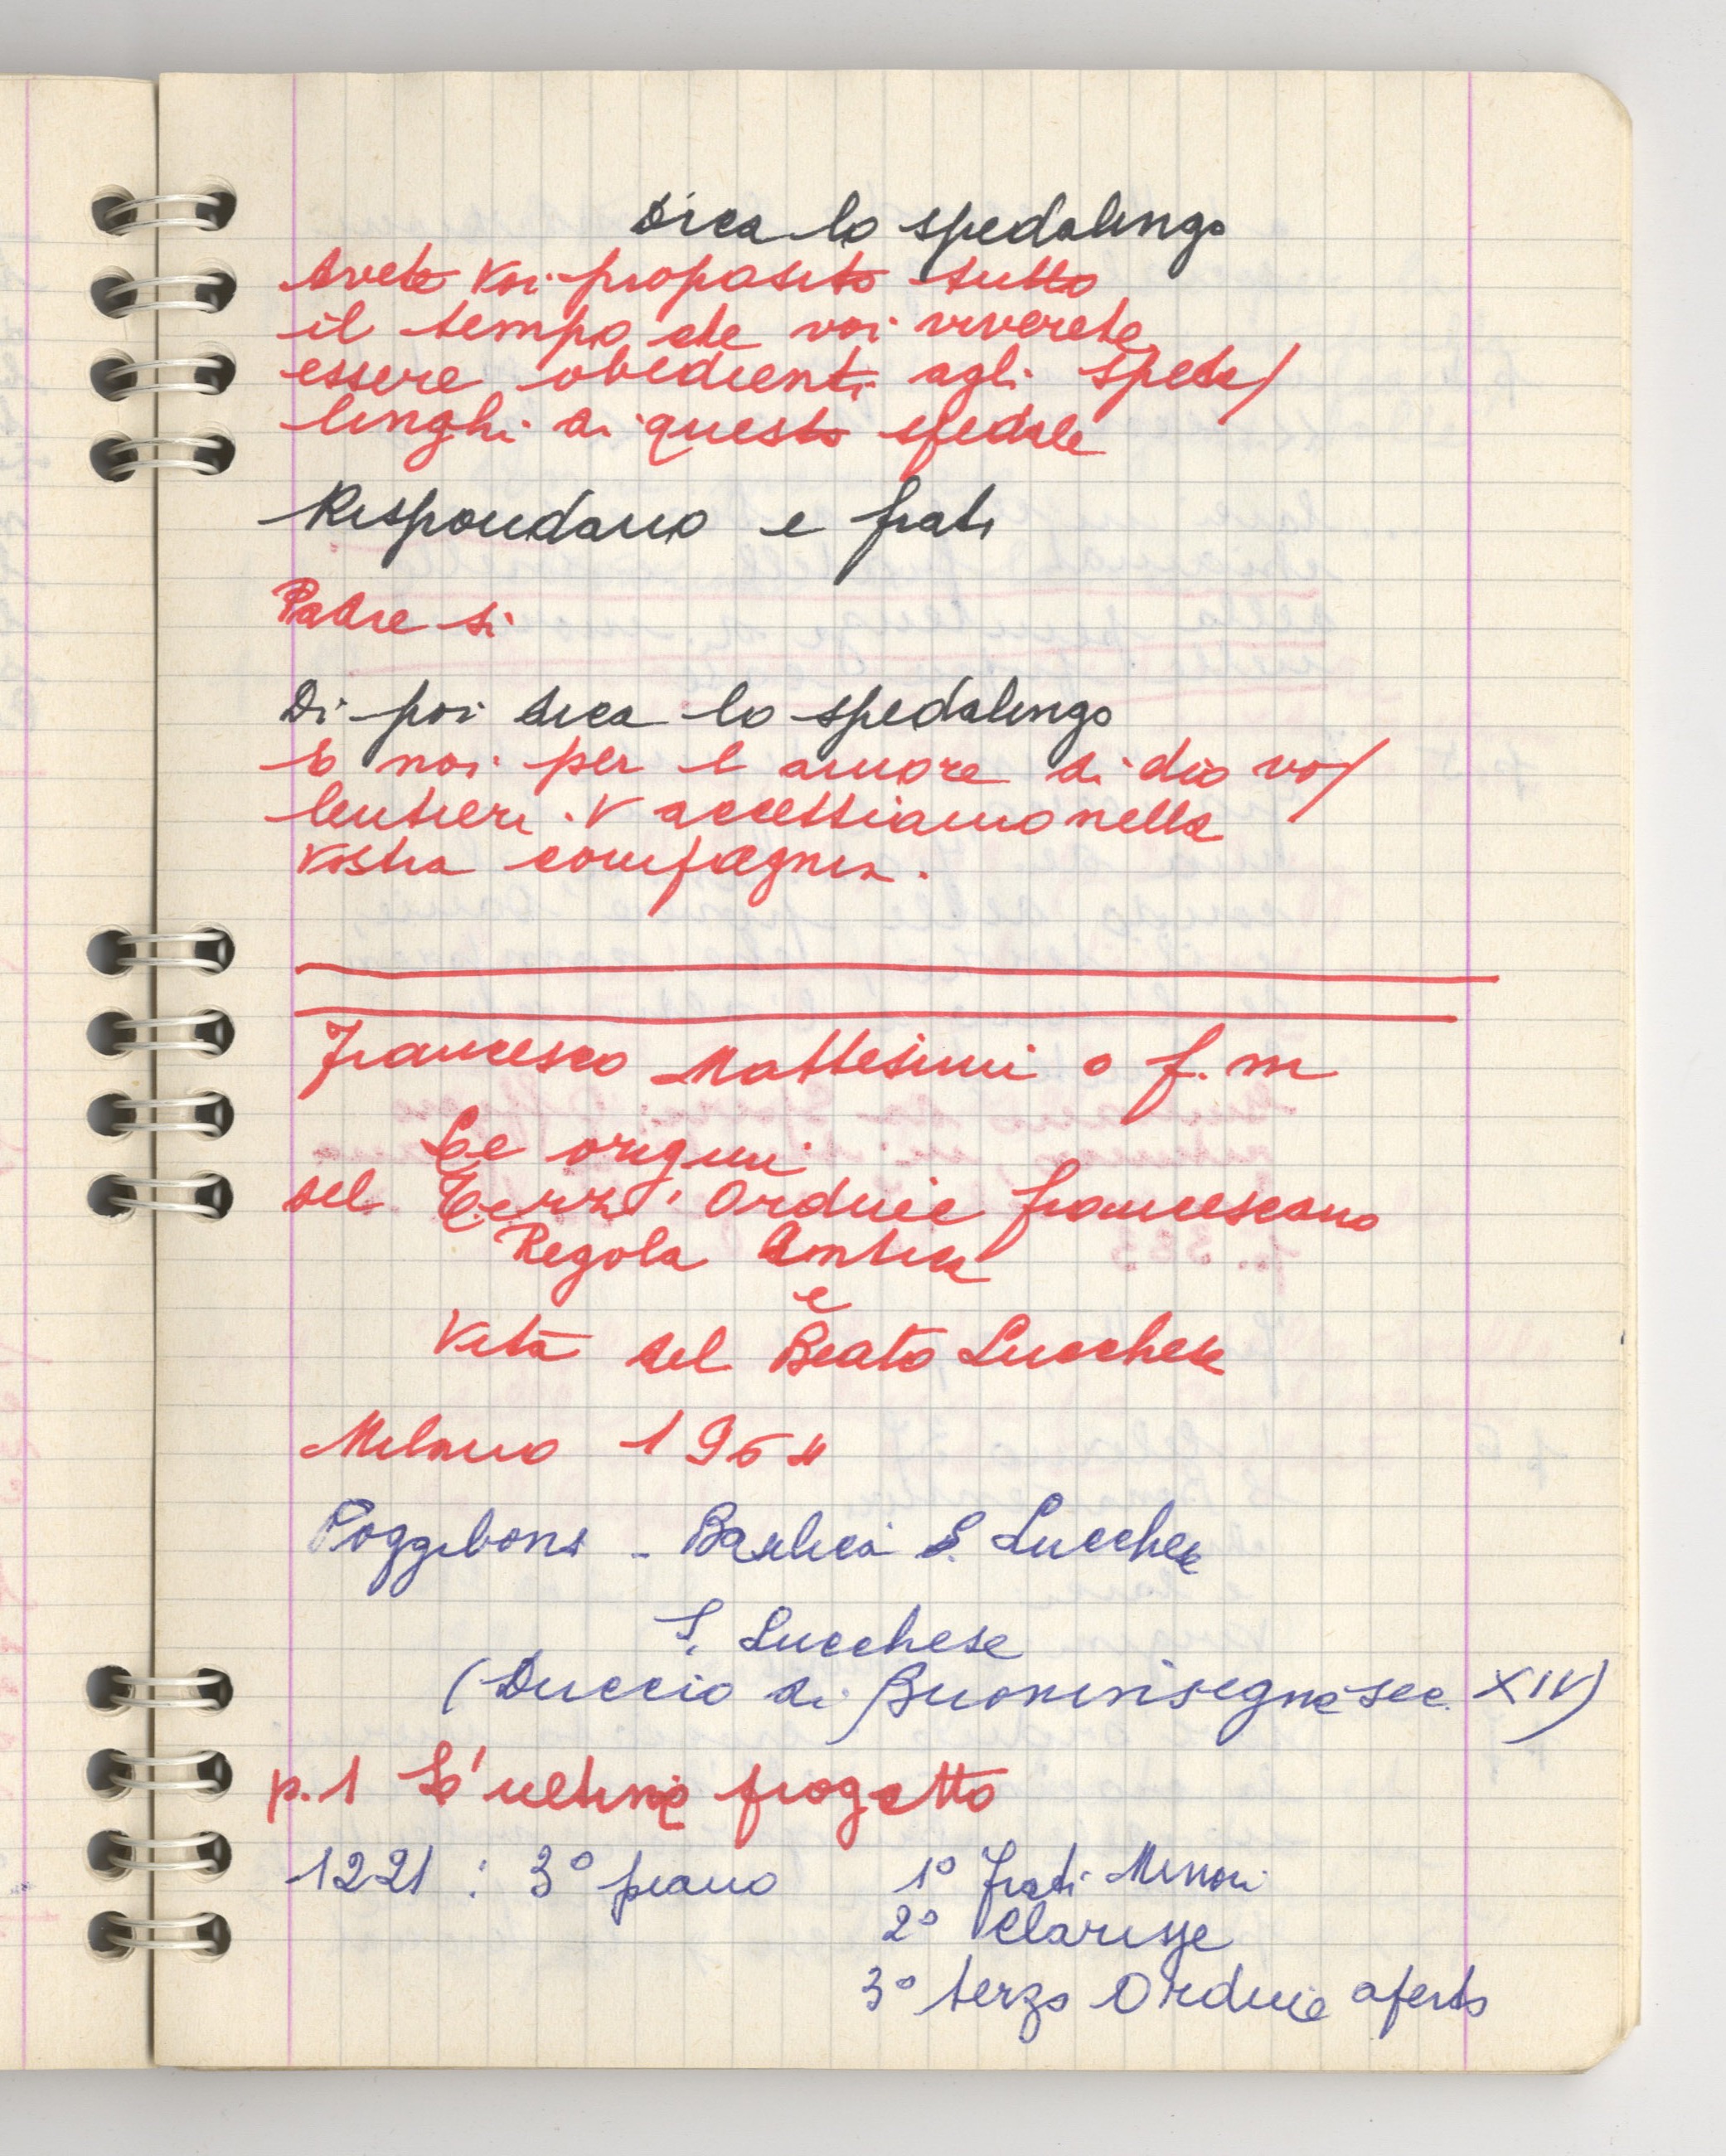 Dica lo spedalingo
Avete voi proposito tutto
il tempo che voi viverete
essere obedienti agli speda/
linghi di questo spedale
Respondano e frati
Padre si
Di poi dica lo spedalingo
E noi per l amore di dio vo/
lentieri. V accettiamo nella
vostra compagnia.
Francesco Mattesini o f. m
Le origini
del Terz' Ordine francescano
Regola Antica
e
Vita del Beato Lucchese
Milano 1964
Poggibonsi - Basilica S. Lucchese
S. Lucchese
(Duccio di Buoninsegna sec. XIV)
p. 1 L'ultimo progetto
1221 : 3° piano 1° frati Minori
2° Clarisse
3° terzo Ordine aperto